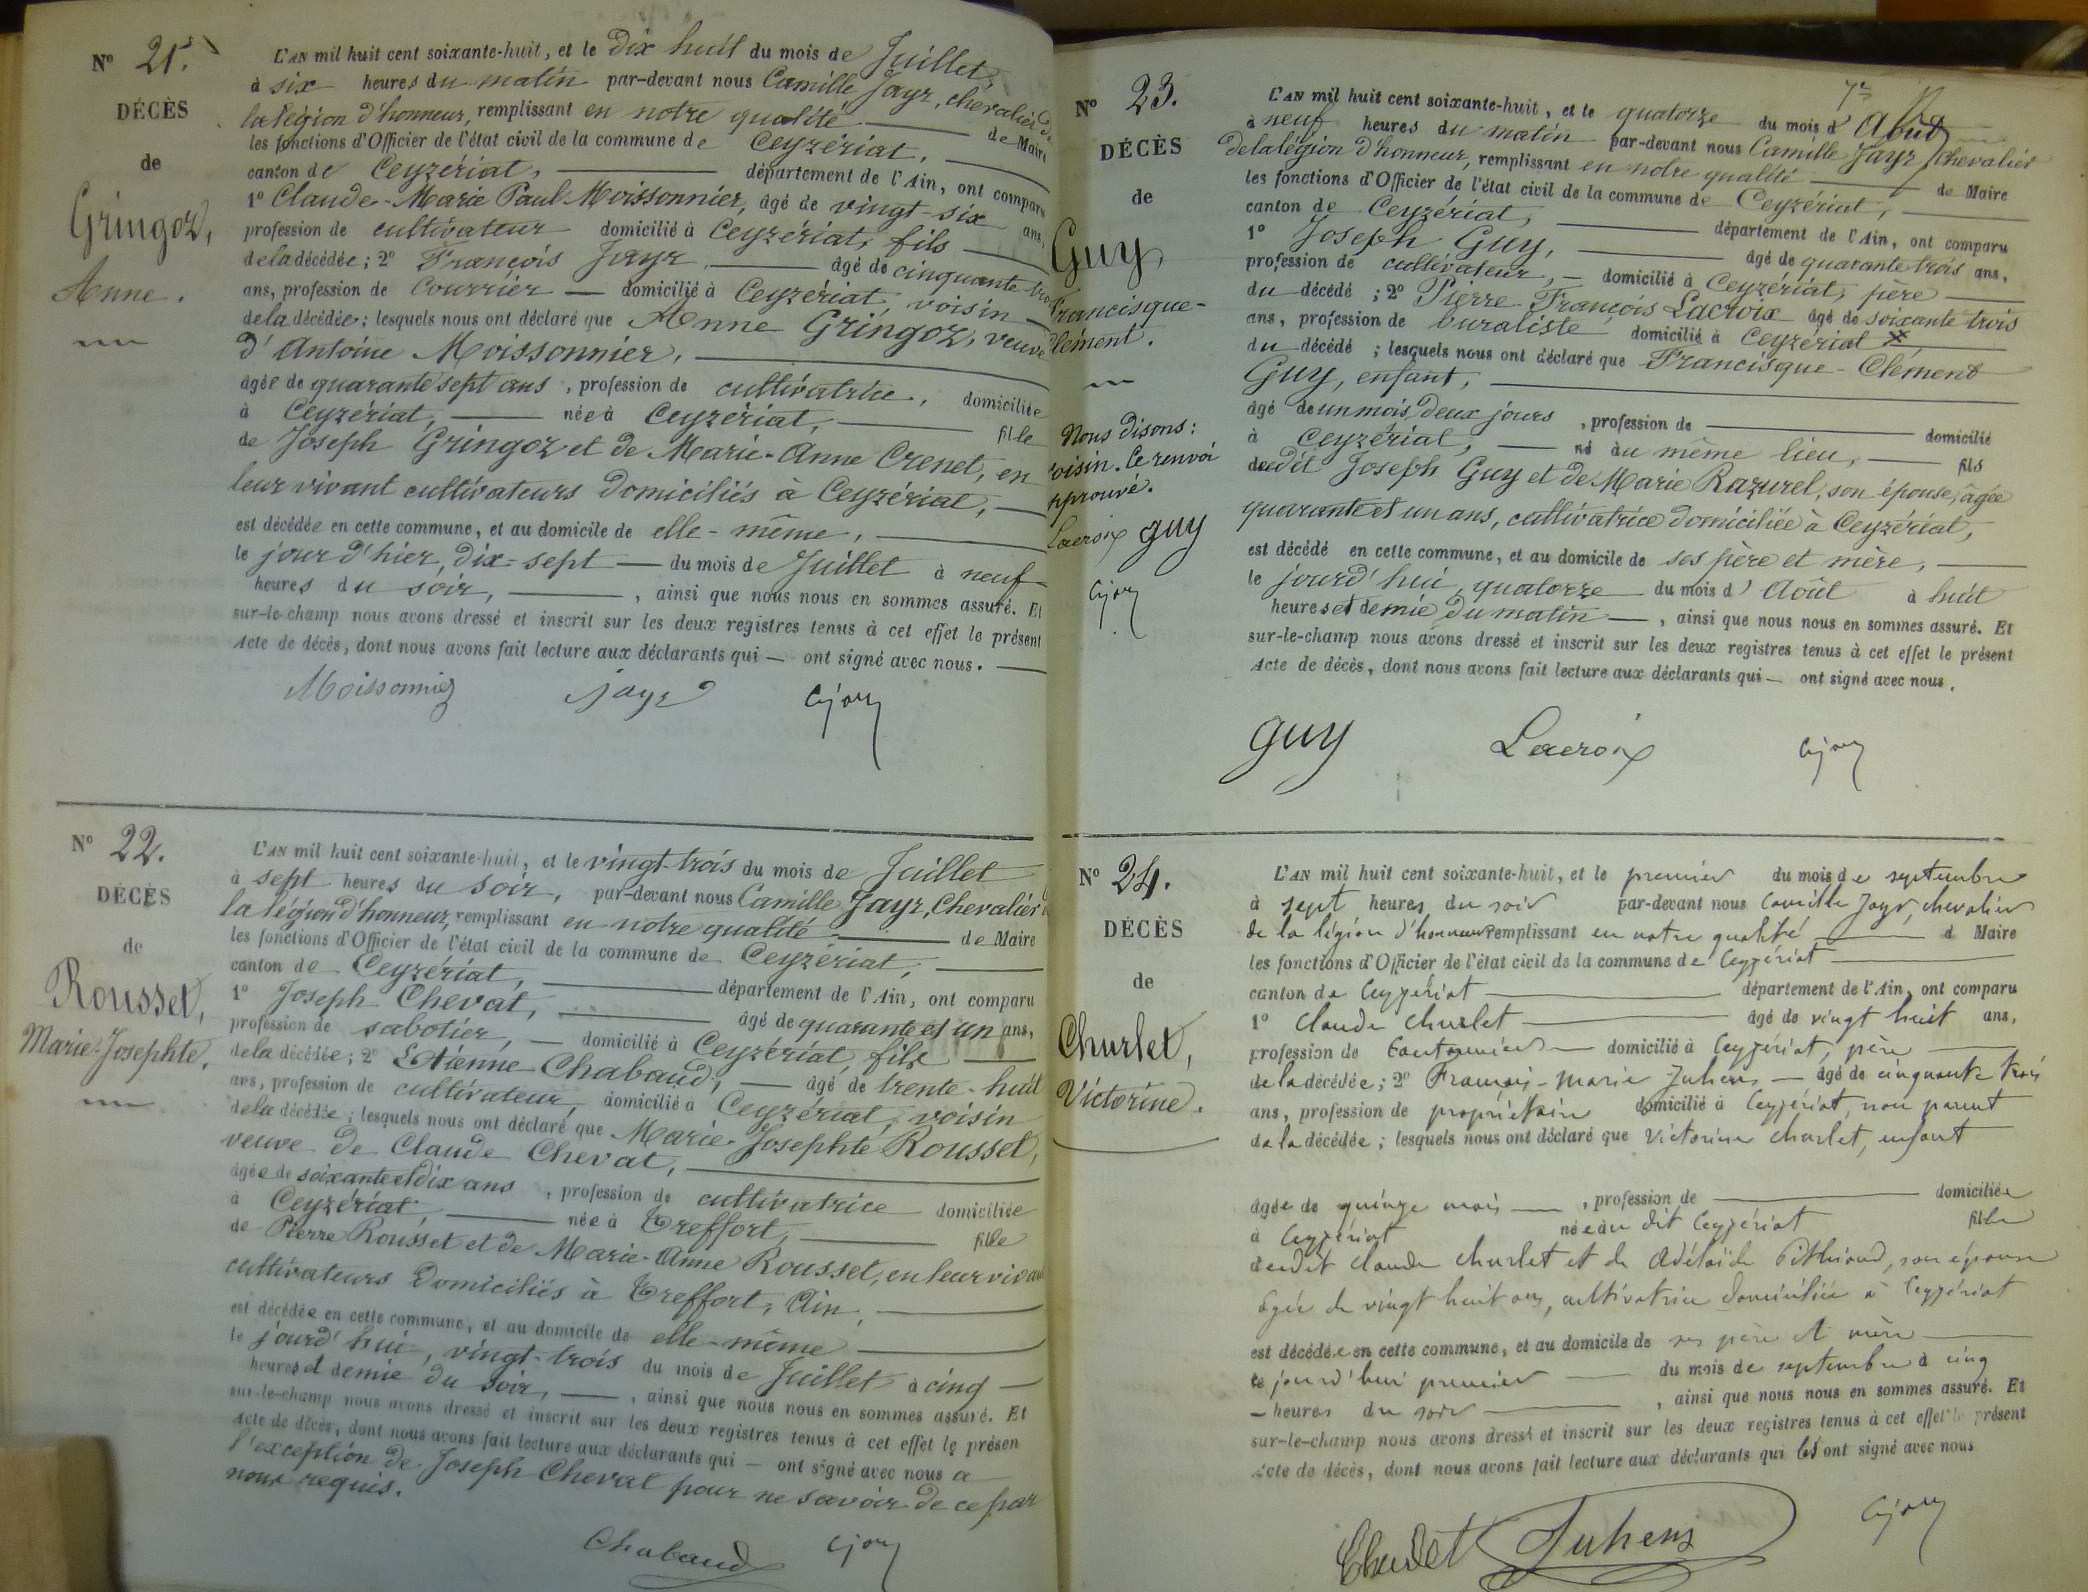 Nº 21.
DÉCÈS
de
Gringoz,
Anne.
L'AN mil huit cent soixante-huit, et le dix huit du mois de Juillet,
à six heures du matin par-devant nous Camille Jayr, chevalier de
la légion d'honneur, remplissant en notre qualité de Maire
les fonctions d'Officier de l'état civil de la commune de Ceyzériat,
canton de Ceyzériat, département de l'Ain, ont comparu
1º Claude-Marie Paul Moissonnier, âgé de vingt-six ans,
profession de cultivateur domicilié à Ceyzériat, fils
de la décédée; 2º François Jayr, âgé de cinquante trois
ans, profession de Courrier domicilié à Ceyzériat, voisin
de la décédée; lesquels nous ont déclaré que Anne Gringoz, veuve
d'Antoine Moissonnier,
âgée de quarante sept ans, profession de cultivatrice, domiciliée
à Ceyzériat, née à Ceyzériat, fille
de Joseph Gringoz et de Marie-Anne Crenet, en
leur vivant cultivateurs domiciliés à Ceyzériat,
est décédée en cette commune, et au domicile de elle-même,
le jour d'hier, dix-sept du mois de Juillet à neuf
heures du soir, , ainsi que nous nous en sommes assuré. Et
sur-le-champ nous avons dressé et inscrit sur les deux registres tenus à cet effet le présent
Acte de décès, dont nous avons fait lecture aux déclarants qui ont signé avec nous.
Moissonnier Jayr
Nº 22.
DÉCÈS
de
Rousset,
Marie-Josephte.
L'AN mil huit cent soixante-huit, et le vingt-trois du mois de Juillet
à sept heures du soir, par-devant nous Camille Jayr, Chevalier de
la légion d'honneur, remplissant en notre qualité de Maire
les fonctions d'Officier de l'état civil de la commune de Ceyzériat,
canton de Ceyzériat, département de l'Ain, ont comparu
1º Joseph Chevat, âgé de quarante et un ans,
profession de sabotier, domicilié à Ceyzériat, fils
de la décédée; 2º Etienne Chabaud, âgé de trente-huit
ans, profession de cultivateur, domicilié à Ceyzériat, voisin
de la décédée; lesquels nous ont déclaré que Marie-Josephte Rousset,
veuve de Claude Chevat,
âgée de soixante et dix ans, profession de cultivatrice domiciliée
à Ceyzériat, née à Treffort, fille
de Pierre Rousset et de Marie-Anne Rousset, en leur vivant
cultivateurs domiciliés à Treffort, Ain,
est décédée en cette commune, et au domicile de elle-même
le jourd'hui, vingt-trois du mois de Juillet à cinq
heures et demie du soir, , ainsi que nous nous en sommes assuré. Et
sur-le-champ nous avons dressé et inscrit sur les deux registres tenus à cet effet le présen
Acte de décès, dont nous avons fait lecture aux déclarants qui ont signé avec nous a
l'exception de Joseph Chevat pour ne savoir de ce par
nous requis.
Chabaud
Nº 23.
DÉCÈS
de
Guy,
Francisque-
Clément.
Nous disons:
voisin. Ce renvoi
approuvé.
Lacroix Guy
L'AN mil huit cent soixante-huit, et le quatorze du mois d'Août
à neuf heures du matin par-devant nous Camille Jayr, chevalier
de la légion d'honneur, remplissant en notre qualité de Maire
les fonctions d'Officier de l'état civil de la commune de Ceyzériat,
canton de Ceyzériat, département de l'Ain, ont comparu
1º Joseph Guy, âgé de quarante trois ans,
profession de cultivateur, domicilié à Ceyzériat, père
du décédé; 2º Pierre François Lacroix âgé de soixante trois
ans, profession de buraliste domicilié à Ceyzériat
du décédé; lesquels nous ont déclaré que Francisque-Clément
Guy, enfant,
âgé de un mois, deux jours, profession de domicilié
à Ceyzériat, né au même lieu, fils
dudit Joseph Guy et de Marie Razurel, son épouse, âgée
quarante et un ans, cultivatrice domiciliée à Ceyzériat,
est décédé en cette commune, et au domicile de ses père et mère,
le jourd'hui, quatorze du mois d'Août à huit
heures et demie du matin, ainsi que nous nous en sommes assuré. Et
sur-le-champ nous avons dressé et inscrit sur les deux registres tenus à cet effet le présent
Acte de décès, dont nous avons fait lecture aux déclarants qui ont signé avec nous.
Guy Lacroix
Nº 24.
DÉCÈS
de
Churlet,
Victorine.
L'AN mil huit cent soixante-huit, et le premier du mois de septembre
à sept heures du soir par-devant nous Camille Jayr, chevalier
de la légion d'honneur remplissant en notre qualité d Maire
les fonctions d'Officier de l'état civil de la commune de Ceyzériat
canton de Ceyzériat département de l'Ain, ont comparu
1º Claude Churlet âgé de vingt huit ans,
profession de Cantonnier domicilié à Ceyzériat, père
de la décédée; 2º François-Marie Juhens âgé de cinquante trois
ans, profession de propriétaire domicilié à Ceyzériat, non parent
de la décédée; lesquels nous ont déclaré que Victorine Churlet, enfant
âgée de quinze mois, profession de domiciliée
à Ceyzériat née au dit Ceyzériat fille
dudit Claude Churlet et de Adélaïde son épouse
âgée de vingt huit ans, cultivatrice domiciliée à Ceyzériat
est décédée en cette commune, et au domicile de ses père et mère
le jourd'hui premier du mois de septembre à cinq
heures du soir, ainsi que nous nous en sommes assuré. Et
sur-le-champ nous avons dressé et inscrit sur les deux registres tenus à cet effet le présent
Acte de décès, dont nous avons fait lecture aux déclarants qui ont signé avec nous
Churlet Juhens